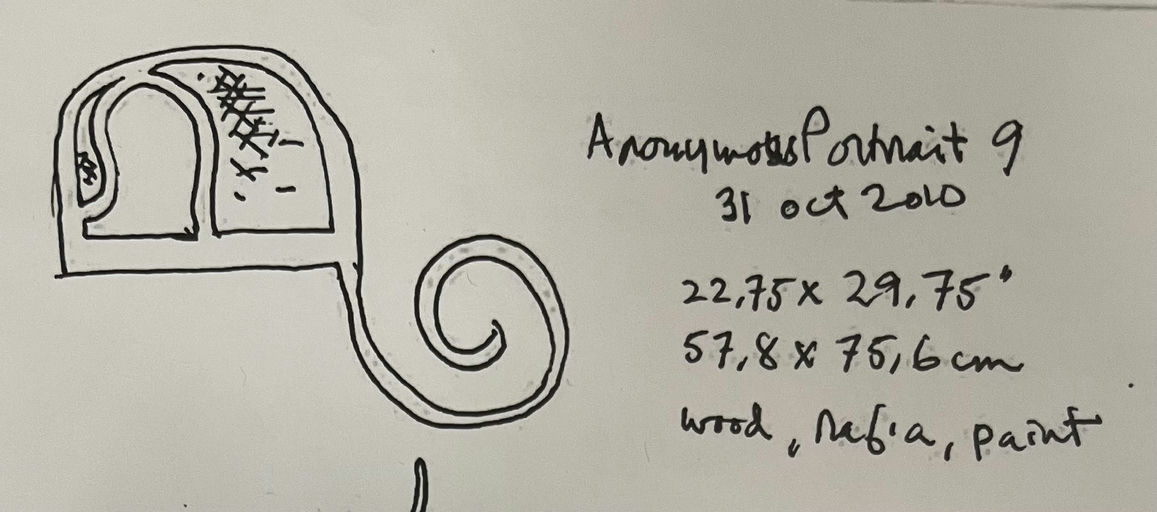 Anonymous Portrait 9
31 oct 2010
22,75 x 29,75"
57,8 x 75,6 cm
wood, rafia, paint